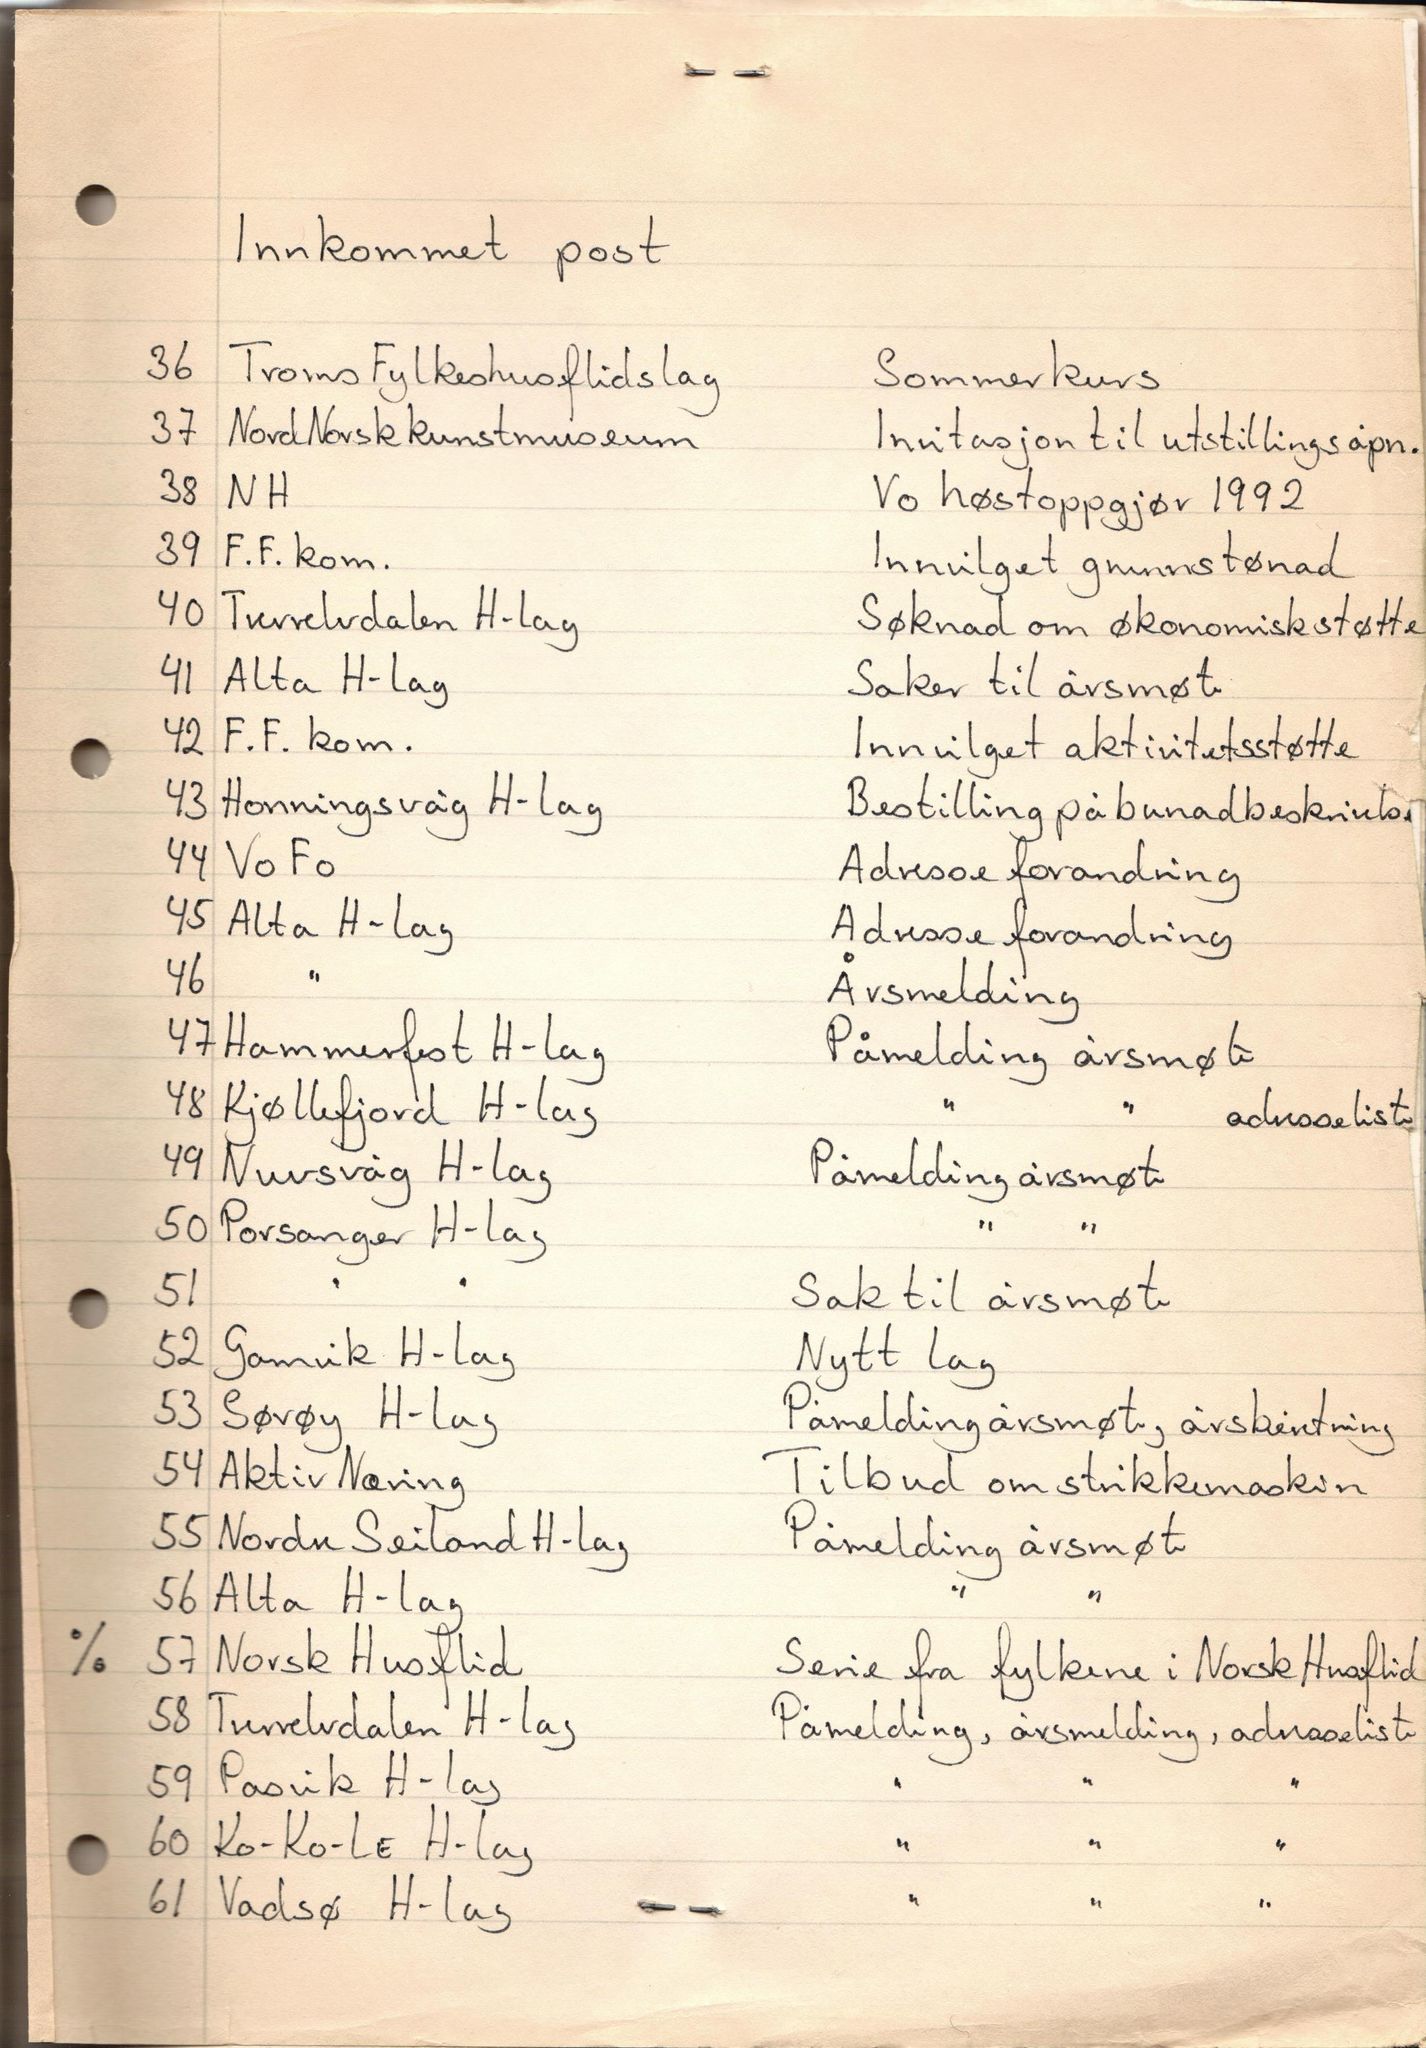 Innkommet post
36 Troms Fylkeshusflidslag Sommerkurs
37 NordNorsk kunstmuseum Invitasjon til utstillingsåpn.
38 NH Vo høstoppgjør 1992
39 F.F. kom. Innvilget grunnstønad
40 Tverrelvdalen H-lag Søknad om økonomisk støtte
41 Alta H-lag Saker til årsmøte
42 F.F. kom. Innvilget aktivitetsstøtte
43 Honningsvåg H-lag Bestilling på bunadbeskrivelse
44 VoFo Adresse forandring
45 Alta H-lag Adresse forandring
46 " Årsmelding
47 Hammerfest H-lag Påmelding årsmøte
48 Kjøllefjord H-lag " " adresseliste
49 Nuvsvåg H-lag Påmelding årsmøte
50 Porsanger H-lag " "
51 " " Sak til årsmøte
52 Gamvik H-lag Nytt lag
53 Sørøy H-lag Påmelding årsmøte, årsberetning
54 Aktiv Næring Tilbud om strikkemaskin
55 Nordre Seiland H-lag Påmelding årsmøte
56 Alta H-lag " "
% 57 Norsk Husflid Serie fra fylkene i Norsk Husflid
58 Tverrelvdalen H-lag Påmelding, årsmelding, adresseliste
59 Pasvik H-lag " " "
60 Ko-Ko-LE H-lag " " "
61 Vadsø H-lag " " "